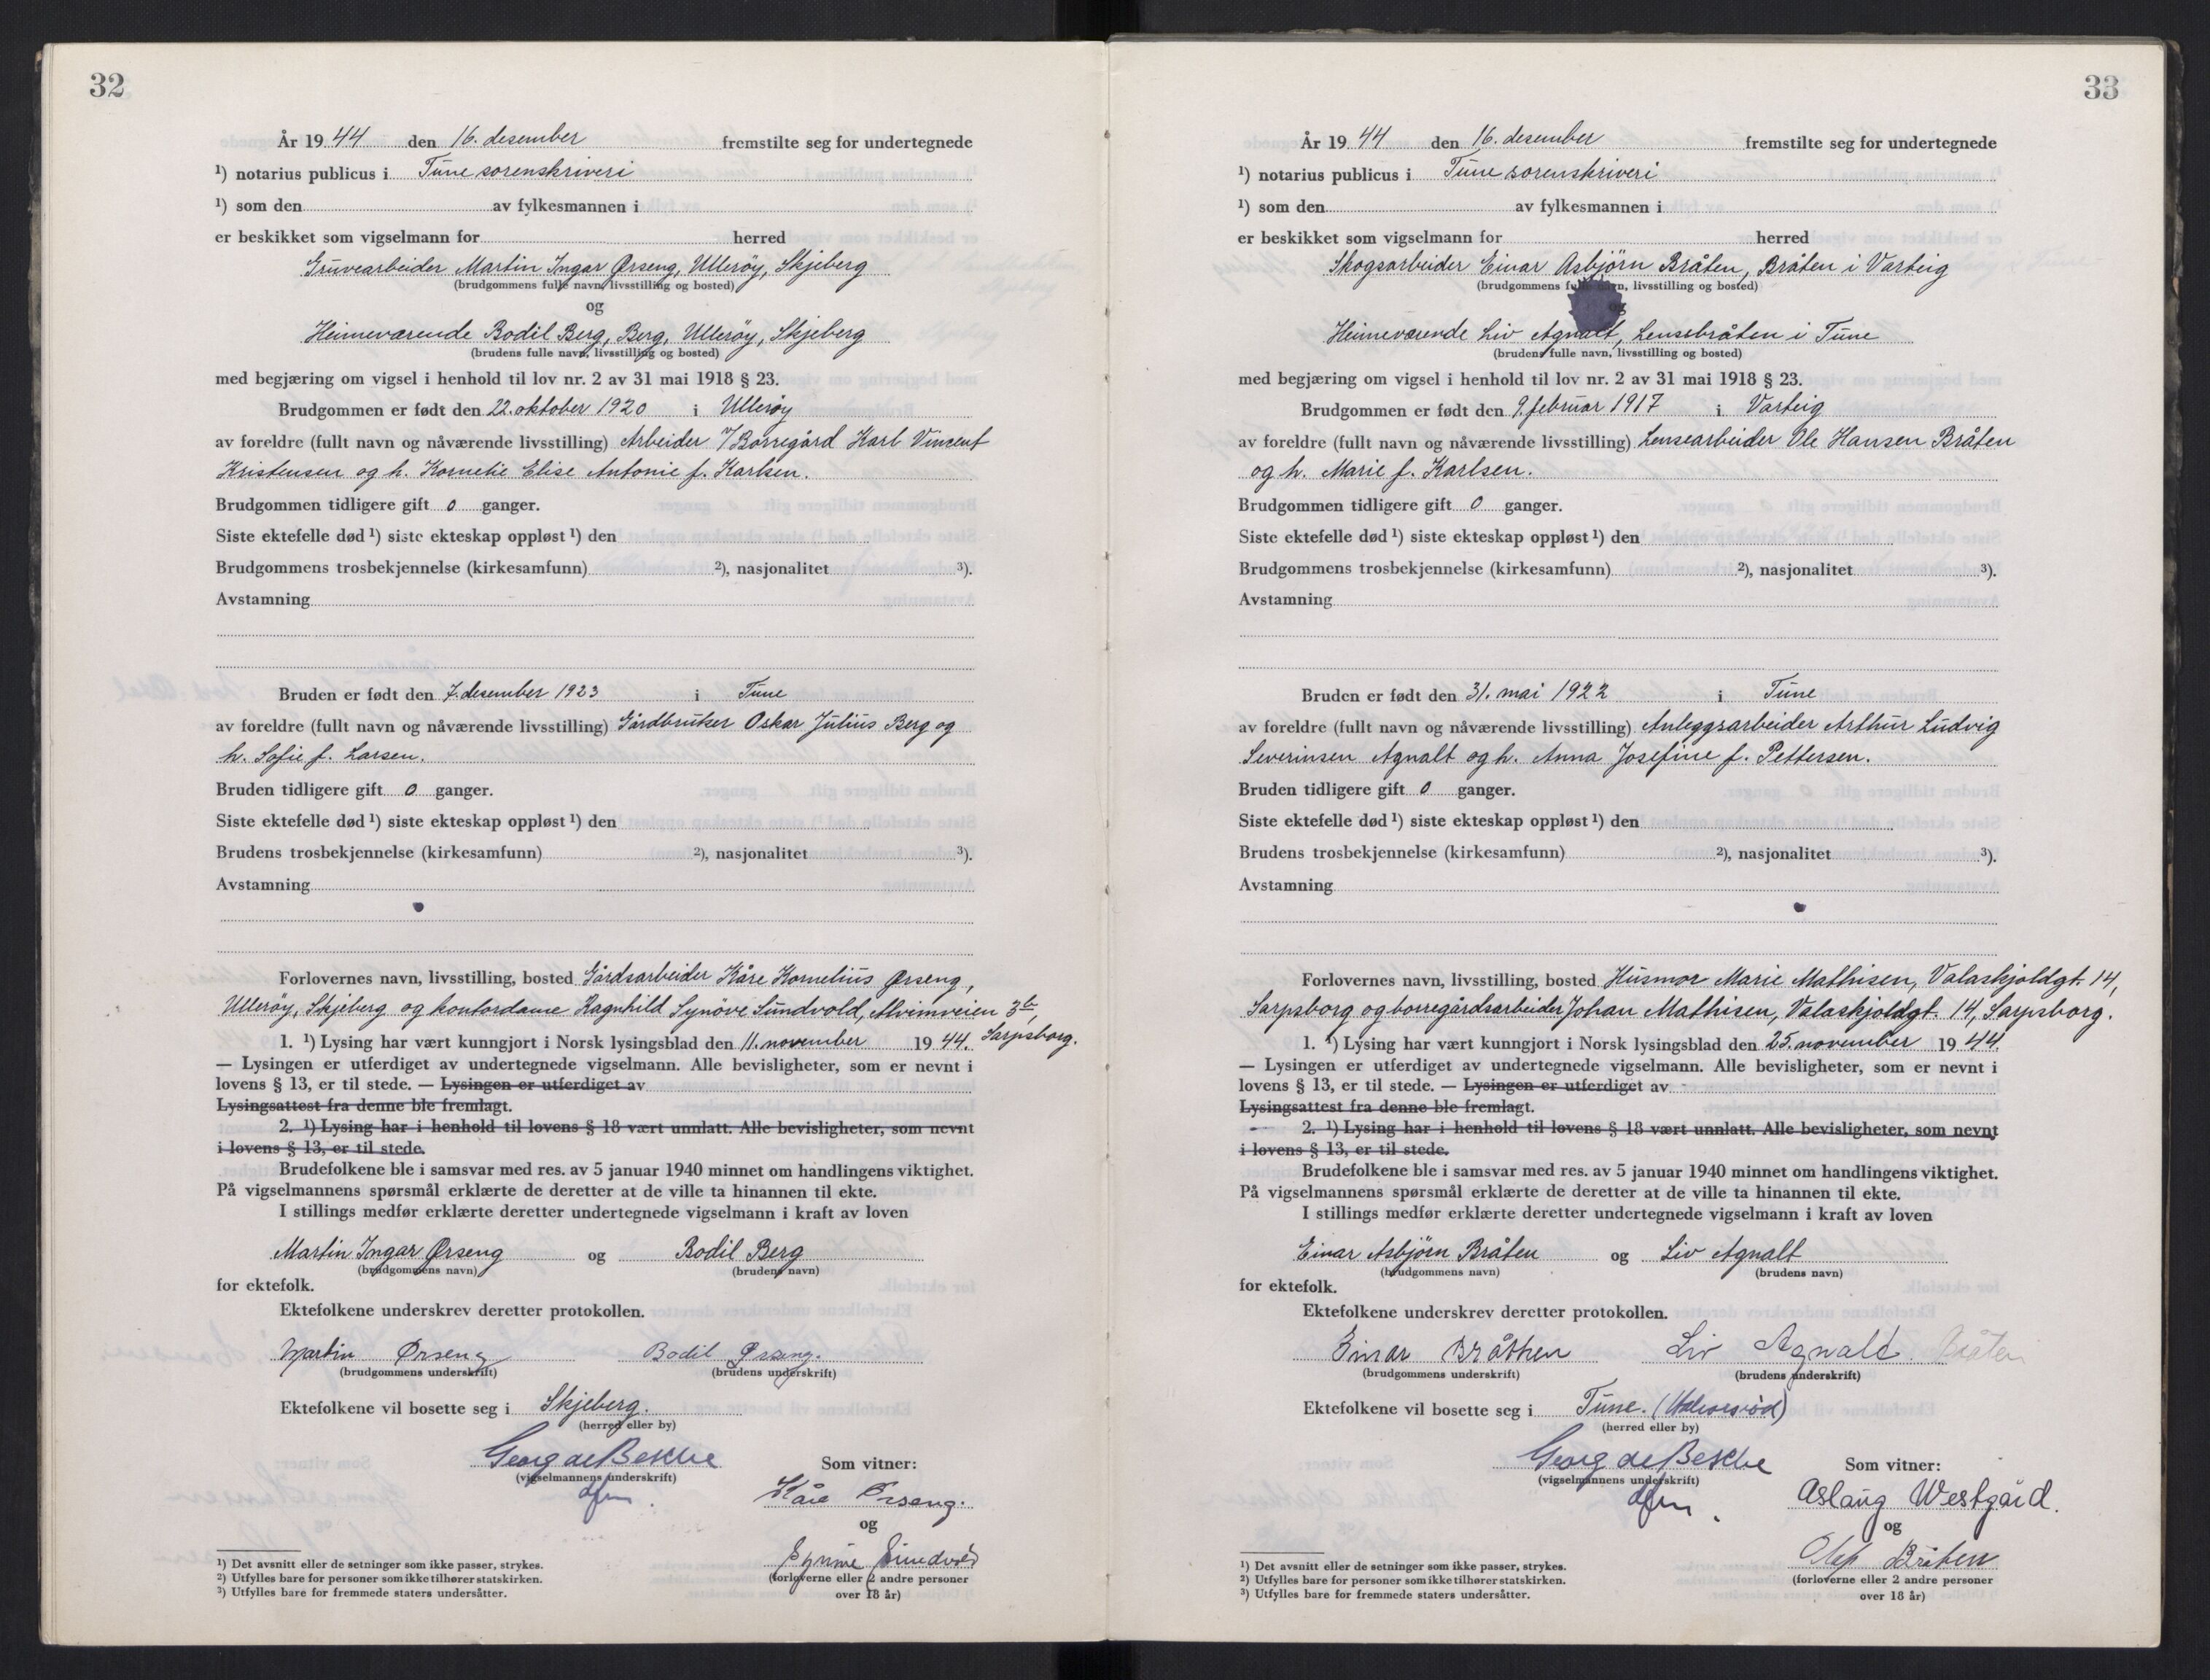 32
År 19 44 den 16. desember fremstilte seg for undertegnede
¹) notarius publicus i Tune sorenskriveri
¹) som den av fylkesmannen i
er beskikket som vigselmann for herred
Gruvearbeider Martin Ingar Ørseng, Ullerøy, Skjeberg
(brudgommens fulle navn, livsstilling og bosted)
og
Heimeværende Bodil Berg, Berg, Ullerøy, Skjeberg
(brudens fulle navn, livsstilling og bosted)
med begjæring om vigsel i henhold til lov nr. 2 av 31 mai 1918 § 23.
Brudgommen er født den 22. oktober 1920 i Ullerøy
av foreldre (fullt navn og nåværende livsstilling) Arbeider v/Borregård Karl Vincent
Kristensen og h. Kornelie Elise Antonie f. Karlsen.
Brudgommen tidligere gift 0 ganger.
Siste ektefelle død ¹) siste ekteskap oppløst ¹) den
Brudgommens trosbekjennelse (kirkesamfunn) ²), nasjonalitet ³).
Avstamning
Bruden er født den 7. desember 1923 i Tune
av foreldre (fullt navn og nåværende livsstilling) Gårdbruker Oskar Julius Berg og
h. Sofie f. Larsen.
Bruden tidligere gift 0 ganger.
Siste ektefelle død ¹) siste ekteskap oppløst ¹) den
Brudens trosbekjennelse (kirkesamfunn) ²), nasjonalitet ³).
Avstamning
Forlovernes navn, livsstilling, bosted Gårdsarbeider Kåre Kornelius Ørseng,
Ullerøy, Skjeberg og kontordame Ragnhild Synöve Sundvold, Alvimveien 3b,
Sarpsborg.
1. ¹) Lysing har vært kunngjort i Norsk lysingsblad den 11. november 19 44.
— Lysingen er utferdiget av undertegnede vigselmann. Alle bevisligheter, som er nevnt i
lovens § 13, er til stede. — Lysingen er utferdiget av
Lysingsattest fra denne ble fremlagt.
2. ¹) Lysing har i henhold til lovens § 18 vært unnlatt. Alle bevisligheter, som nevnt
i lovens § 13, er til stede.
Brudefolkene ble i samsvar med res. av 5 januar 1940 minnet om handlingens viktighet.
På vigselmannens spørsmål erklærte de deretter at de ville ta hinannen til ekte.
I stillings medfør erklærte deretter undertegnede vigselmann i kraft av loven
Martin Ingar Ørseng og Bodil Berg
(brudgommens navn) (brudens navn)
for ektefolk.
Ektefolkene underskrev deretter protokollen.
Martin Ørseng Bodil Ørseng.
(brudgommens underskrift) (brudens underskrift)
Ektefolkene vil bosette seg i Skjeberg.
(herred eller by)
Georg de Besche
(vigselmannens underskrift)
Som vitner:
Kåre Ørseng.
og
Synöve Sundvold
(forloverne eller 2 andre personer
over 18 år)
¹) Det avsnitt eller de setninger som ikke passer, strykes.
²) Utfylles bare for personer som ikke tilhører statskirken.
³) Utfylles bare for fremmede staters undersåtter.
33
År 19 44 den 16. desember fremstilte seg for undertegnede
¹) notarius publicus i Tune sorenskriveri
¹) som den av fylkesmannen i
er beskikket som vigselmann for herred
Skogsarbeider Einar Asbjörn Bråten, Bråten i Varteig
(brudgommens fulle navn, livsstilling og bosted)
og
Heimeværende Liv Agnalt, Lensebråten i Tune
(brudens fulle navn, livsstilling og bosted)
med begjæring om vigsel i henhold til lov nr. 2 av 31 mai 1918 § 23.
Brudgommen er født den 9. februar 1917 i Varteig
av foreldre (fullt navn og nåværende livsstilling) Lensearbeider Ole Hansen Bråten
og h. Marie f. Karlsen.
Brudgommen tidligere gift 0 ganger.
Siste ektefelle død ¹) siste ekteskap oppløst ¹) den
Brudgommens trosbekjennelse (kirkesamfunn) ²), nasjonalitet ³).
Avstamning
Bruden er født den 31. mai 1922 i Tune
av foreldre (fullt navn og nåværende livsstilling) Anleggsarbeider Arthur Ludvig
Severinsen Agnalt og h. Anna Josefine f. Pettersen.
Bruden tidligere gift 0 ganger.
Siste ektefelle død ¹) siste ekteskap oppløst ¹) den
Brudens trosbekjennelse (kirkesamfunn) ²), nasjonalitet ³).
Avstamning
Forlovernes navn, livsstilling, bosted Husmor Marie Mathisen, Valaskjoldgt. 14,
Sarpsborg og borregårdsarbeider Johan Mathisen, Valaskjoldgt. 14, Sarpsborg.
1. ¹) Lysing har vært kunngjort i Norsk lysingsblad den 25. november 19 44.
— Lysingen er utferdiget av undertegnede vigselmann. Alle bevisligheter, som er nevnt i
lovens § 13, er til stede. — Lysingen er utferdiget av
Lysingsattest fra denne ble fremlagt.
2. ¹) Lysing har i henhold til lovens § 18 vært unnlatt. Alle bevisligheter, som nevnt
i lovens § 13, er til stede.
Brudefolkene ble i samsvar med res. av 5 januar 1940 minnet om handlingens viktighet.
På vigselmannens spørsmål erklærte de deretter at de ville ta hinannen til ekte.
I stillings medfør erklærte deretter undertegnede vigselmann i kraft av loven
Einar Asbjörn Bråten og Liv Agnalt
(brudgommens navn) (brudens navn)
for ektefolk.
Ektefolkene underskrev deretter protokollen.
Einar Bråthen Liv Agnalt. Bråten
(brudgommens underskrift) (brudens underskrift)
Ektefolkene vil bosette seg i Tune.
(herred eller by)
Georg de Besche
(vigselmannens underskrift)
Som vitner:
Aslaug Westgård.
og
Olaf Bråten
(forloverne eller 2 andre personer
over 18 år)
¹) Det avsnitt eller de setninger som ikke passer, strykes.
²) Utfylles bare for personer som ikke tilhører statskirken.
³) Utfylles bare for fremmede staters undersåtter.